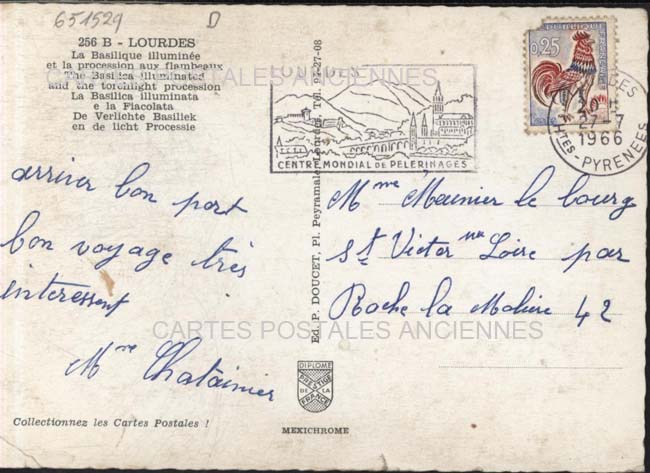 651529 D
256 B - LOURDES
La Basilique illuminée
et la procession aux flambeaux
The Basilica illuminated
and the torchlight procession
La Basilica illuminata
e la Fiacolata
De Verlichte Basiliek
en de licht Processie
arriver bon port
bon voyage très
interessent
Mme Chataimier
Collectionnez les Cartes Postales !
Ed. P. DOUCET, Pl. Peyramale, Lourdes, Tél. 94-27-08
LOURDES
CENTRE MONDIAL DE PELERINAGES
REPUBLIQUE FRANCAISE
0,25
LOURDES
27-7
1966
HTES-PYRENEES
Mme Meunier le bourg
St Victor sur Loire par
Roche la Molière 42
CARTES POSTALES ANCIENNES
CARTES POSTALES ANCIENNES
DIPLOME
PRESTIGE
DE LA
FRANCE
MEXICHROME